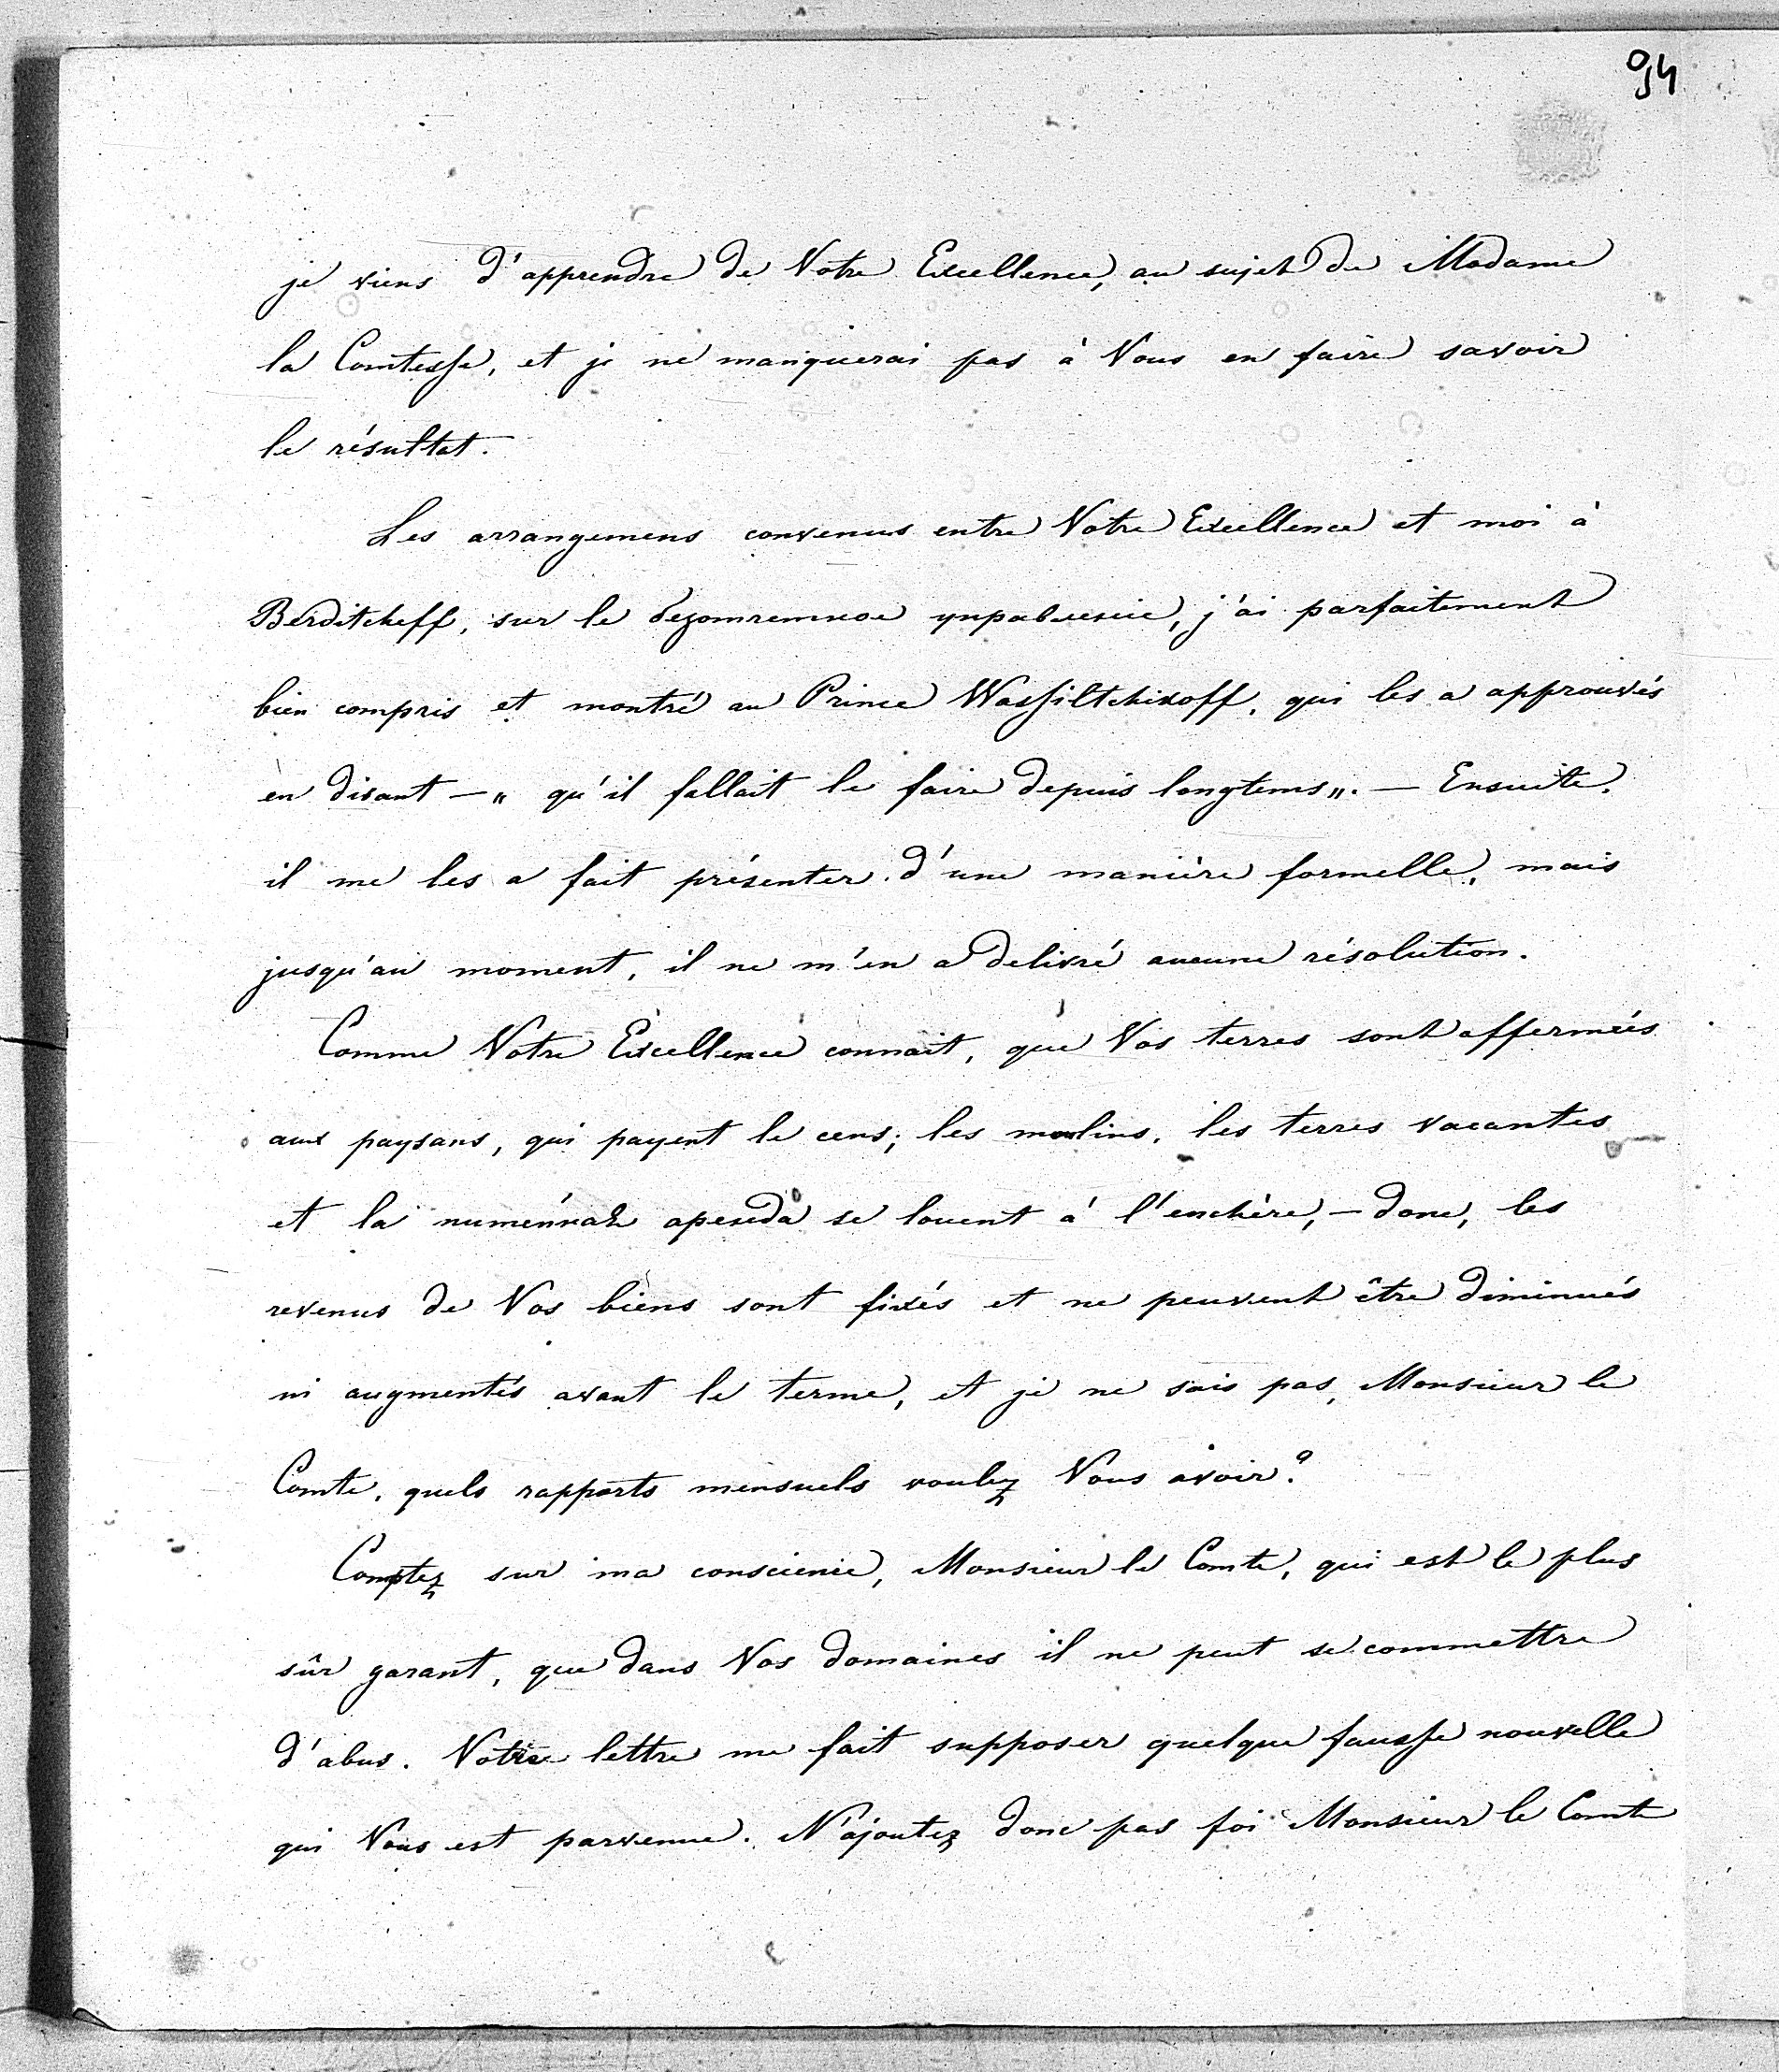 94
je viens d'apprendre de Votre Excellence, au sujet de Madame
la Comtesse, et je ne manquerai pas à Vous en faire savoir
le résultat.
Les arrangemens convenus entre Votre Excellence et moi à
Berditcheff, sur le безотчетное управление, j'ai parfaitement
bien compris et montré au Prince Wassiltchikoff, qui les a approuvés
en disant — „ qu'il fallait le faire depuis longtems „. — Ensuite,
il me les a fait présenter d'une manière formelle, mais
jusqu'au moment, il ne m'en a delivré aucune résolution.
Comme Votre Excellence connait, que Vos terres sont affermées
aux paysans, qui payent le cens; les moulins, les terres vacantes
et la питейная аренда se louent à l'enchère, — donc, les
revenus de Vos biens sont fixés et ne peuvent être diminués
ni augmentés avant le terme, et je ne sais pas, Monsieur le
Comte, quels rapports mensuels voulez Vous avoir?
Comptez sur ma conscience, Monsieur le Comte, qui est le plus
sûr garant, que dans Vos domaines il ne peut se commettre
d'abus. Votre lettre me fait supposer quelque fausse nouvelle
qui Vous est parvenue. N'ajoutez donc pas foi Monsieur le Comte